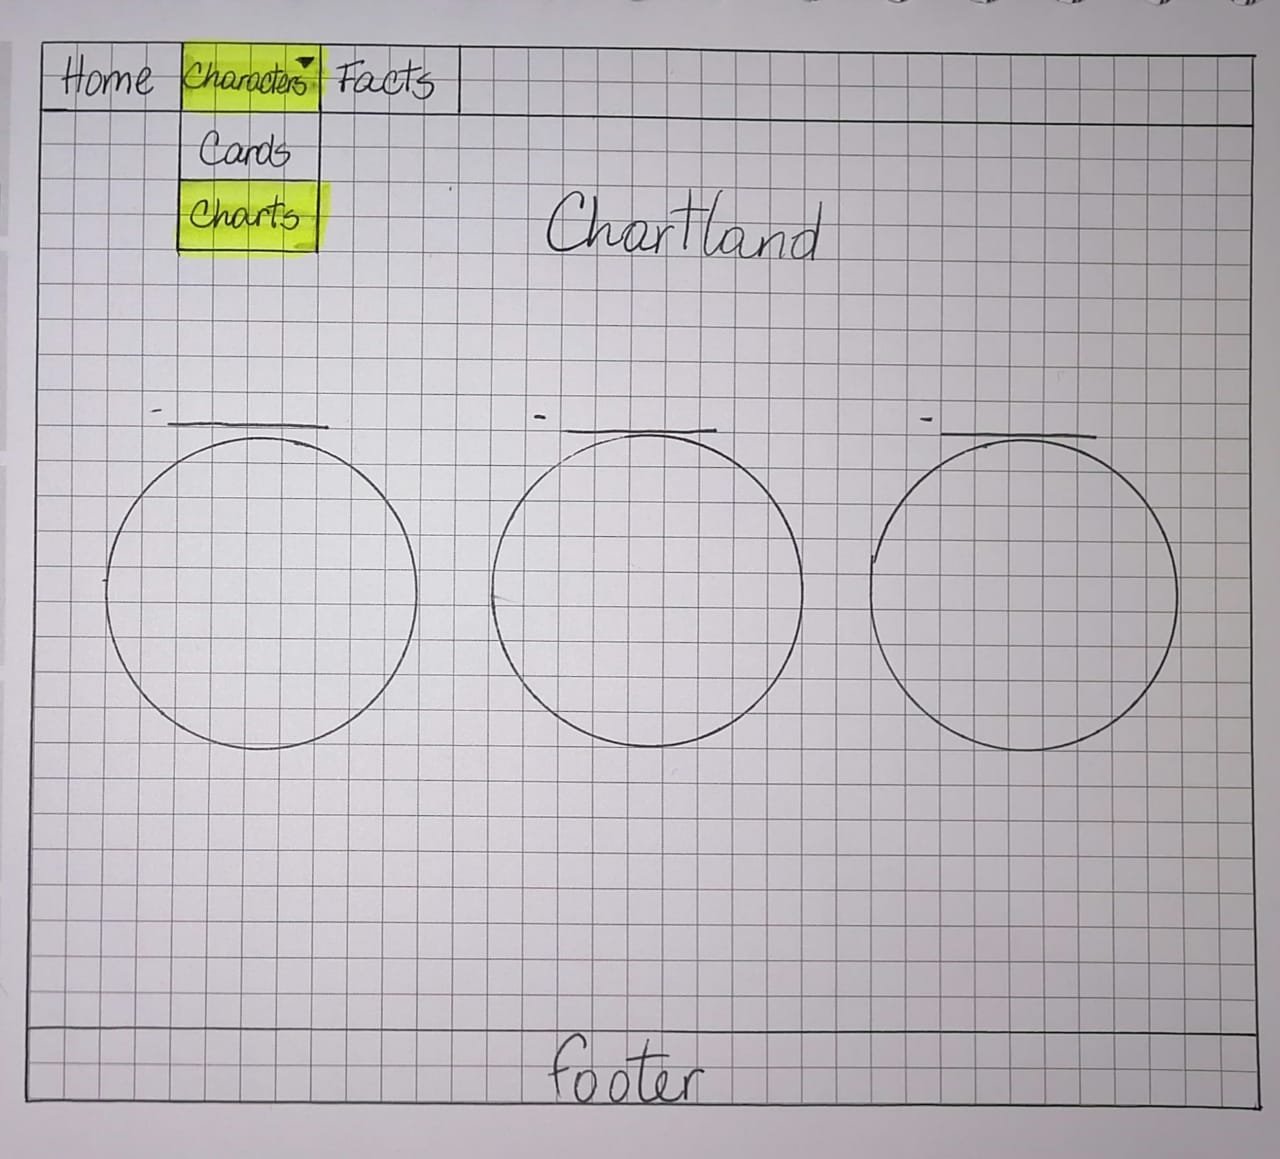 Home Characters Facts
Cards
Charts
Chartland
footer